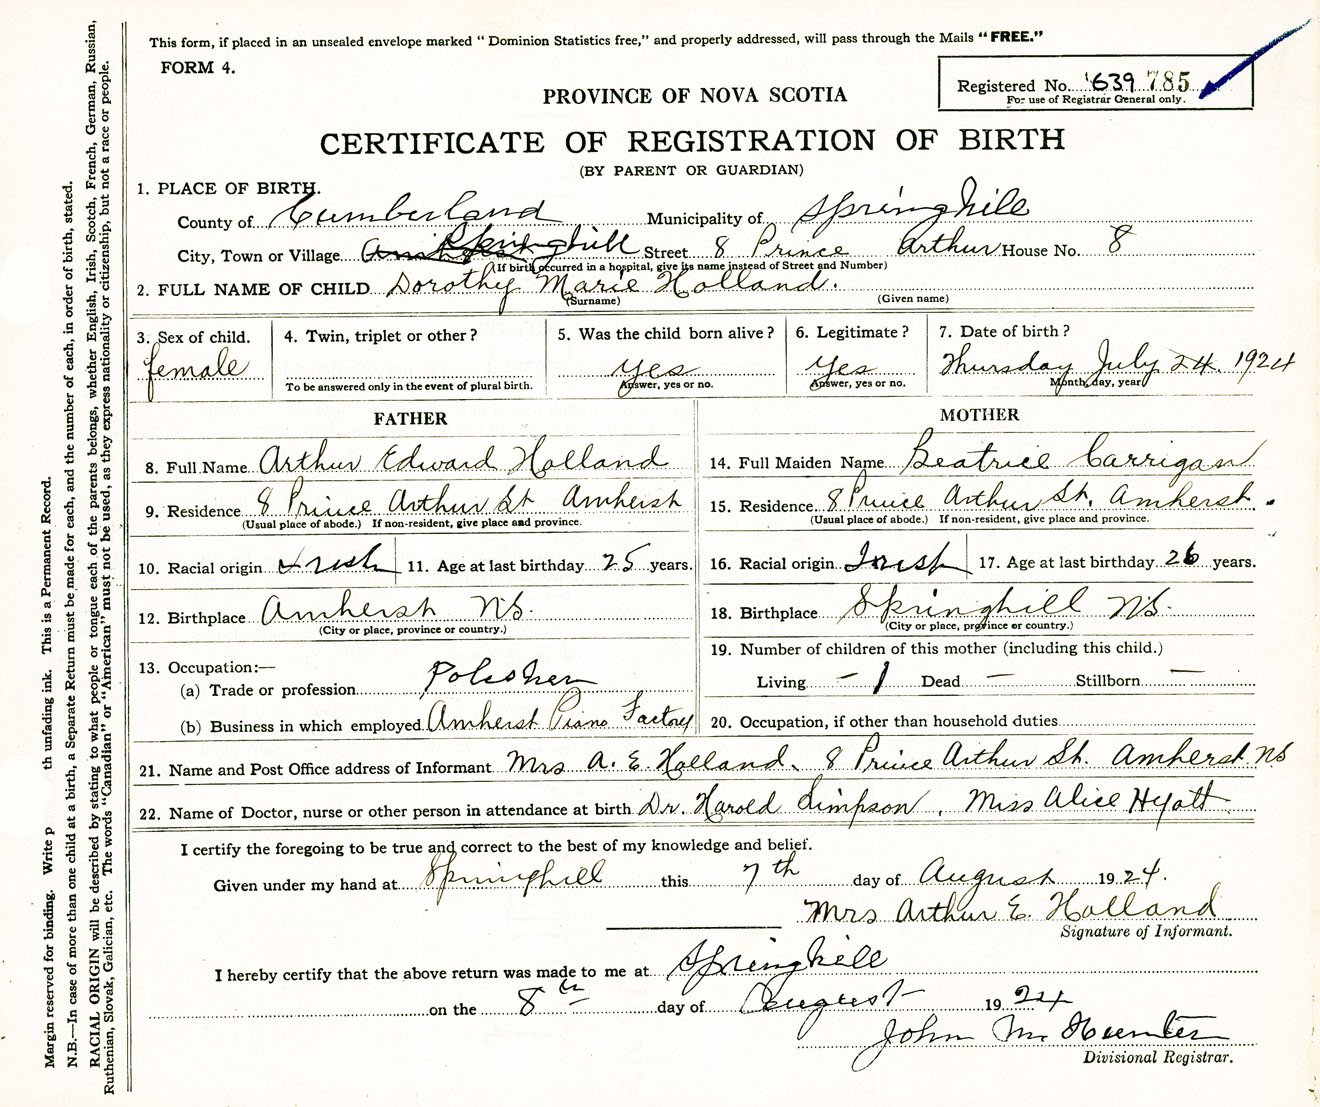 This form, if placed in an unsealed envelope marked “ Dominion Statistics free,” and properly addressed, will pass through the Mails “ FREE.”
FORM 4.
Registered No. 639 785
For use of Registrar General only.
PROVINCE OF NOVA SCOTIA
CERTIFICATE OF REGISTRATION OF BIRTH
(BY PARENT OR GUARDIAN)
1. PLACE OF BIRTH.
County of Cumberland Municipality of Springhill
City, Town or Village Springhill Street 8 Prince Arthur House No. 8
(If birth occurred in a hospital, give its name instead of Street and Number)
2. FULL NAME OF CHILD Dorothy Marie Holland.
(Surname) (Given name)
3. Sex of child. 4. Twin, triplet or other? 5. Was the child born alive? 6. Legitimate? 7. Date of birth?
female yes Yes Thursday July 24, 1924
To be answered only in the event of plural birth. Answer, yes or no. Answer, yes or no. Month, day, year
FATHER MOTHER
8. Full Name Arthur Edward Holland 14. Full Maiden Name Beatrice Carrigan
9. Residence 8 Prince Arthur St Amherst 15. Residence 8 Prince Arthur St. Amherst.
(Usual place of abode.) If non-resident, give place and province. (Usual place of abode.) If non-resident, give place and province.
10. Racial origin Irish 11. Age at last birthday 25 years. 16. Racial origin Irish 17. Age at last birthday 26 years.
12. Birthplace Amherst NS. 18. Birthplace Springhill NS.
(City or place, province or country.) (City or place, province or country.)
13. Occupation:— 19. Number of children of this mother (including this child.)
(a) Trade or profession Polisher Living - 1 Dead — Stillborn —
(b) Business in which employed Amherst Piano Factory 20. Occupation, if other than household duties
21. Name and Post Office address of Informant Mrs A. E Holland, 8 Prince Arthur St. Amherst NS
22. Name of Doctor, nurse or other person in attendance at birth Dr. Harold Simpson, Miss Alice Hyatt
I certify the foregoing to be true and correct to the best of my knowledge and belief.
Given under my hand at Springhill this 7th day of August 1924.
Mrs Arthur E. Holland
Signature of Informant.
I hereby certify that the above return was made to me at Springhill
on the 8th day of August 1924
John M. Hunter
Divisional Registrar.
Margin reserved for binding. Write p th unfading ink. This is a Permanent Record.
N.B.—In case of more than one child at a birth, a Separate Return must be made for each, and the number of each, in order of birth, stated.
RACIAL ORIGIN will be described by stating to what people or tongue each of the parents belongs, whether English, Irish, Scotch, French, German, Russian,
Ruthenian, Slovak, Galician, etc. The words “Canadian” or “American” must not be used, as they express nationality or citizenship, but not a race or people.